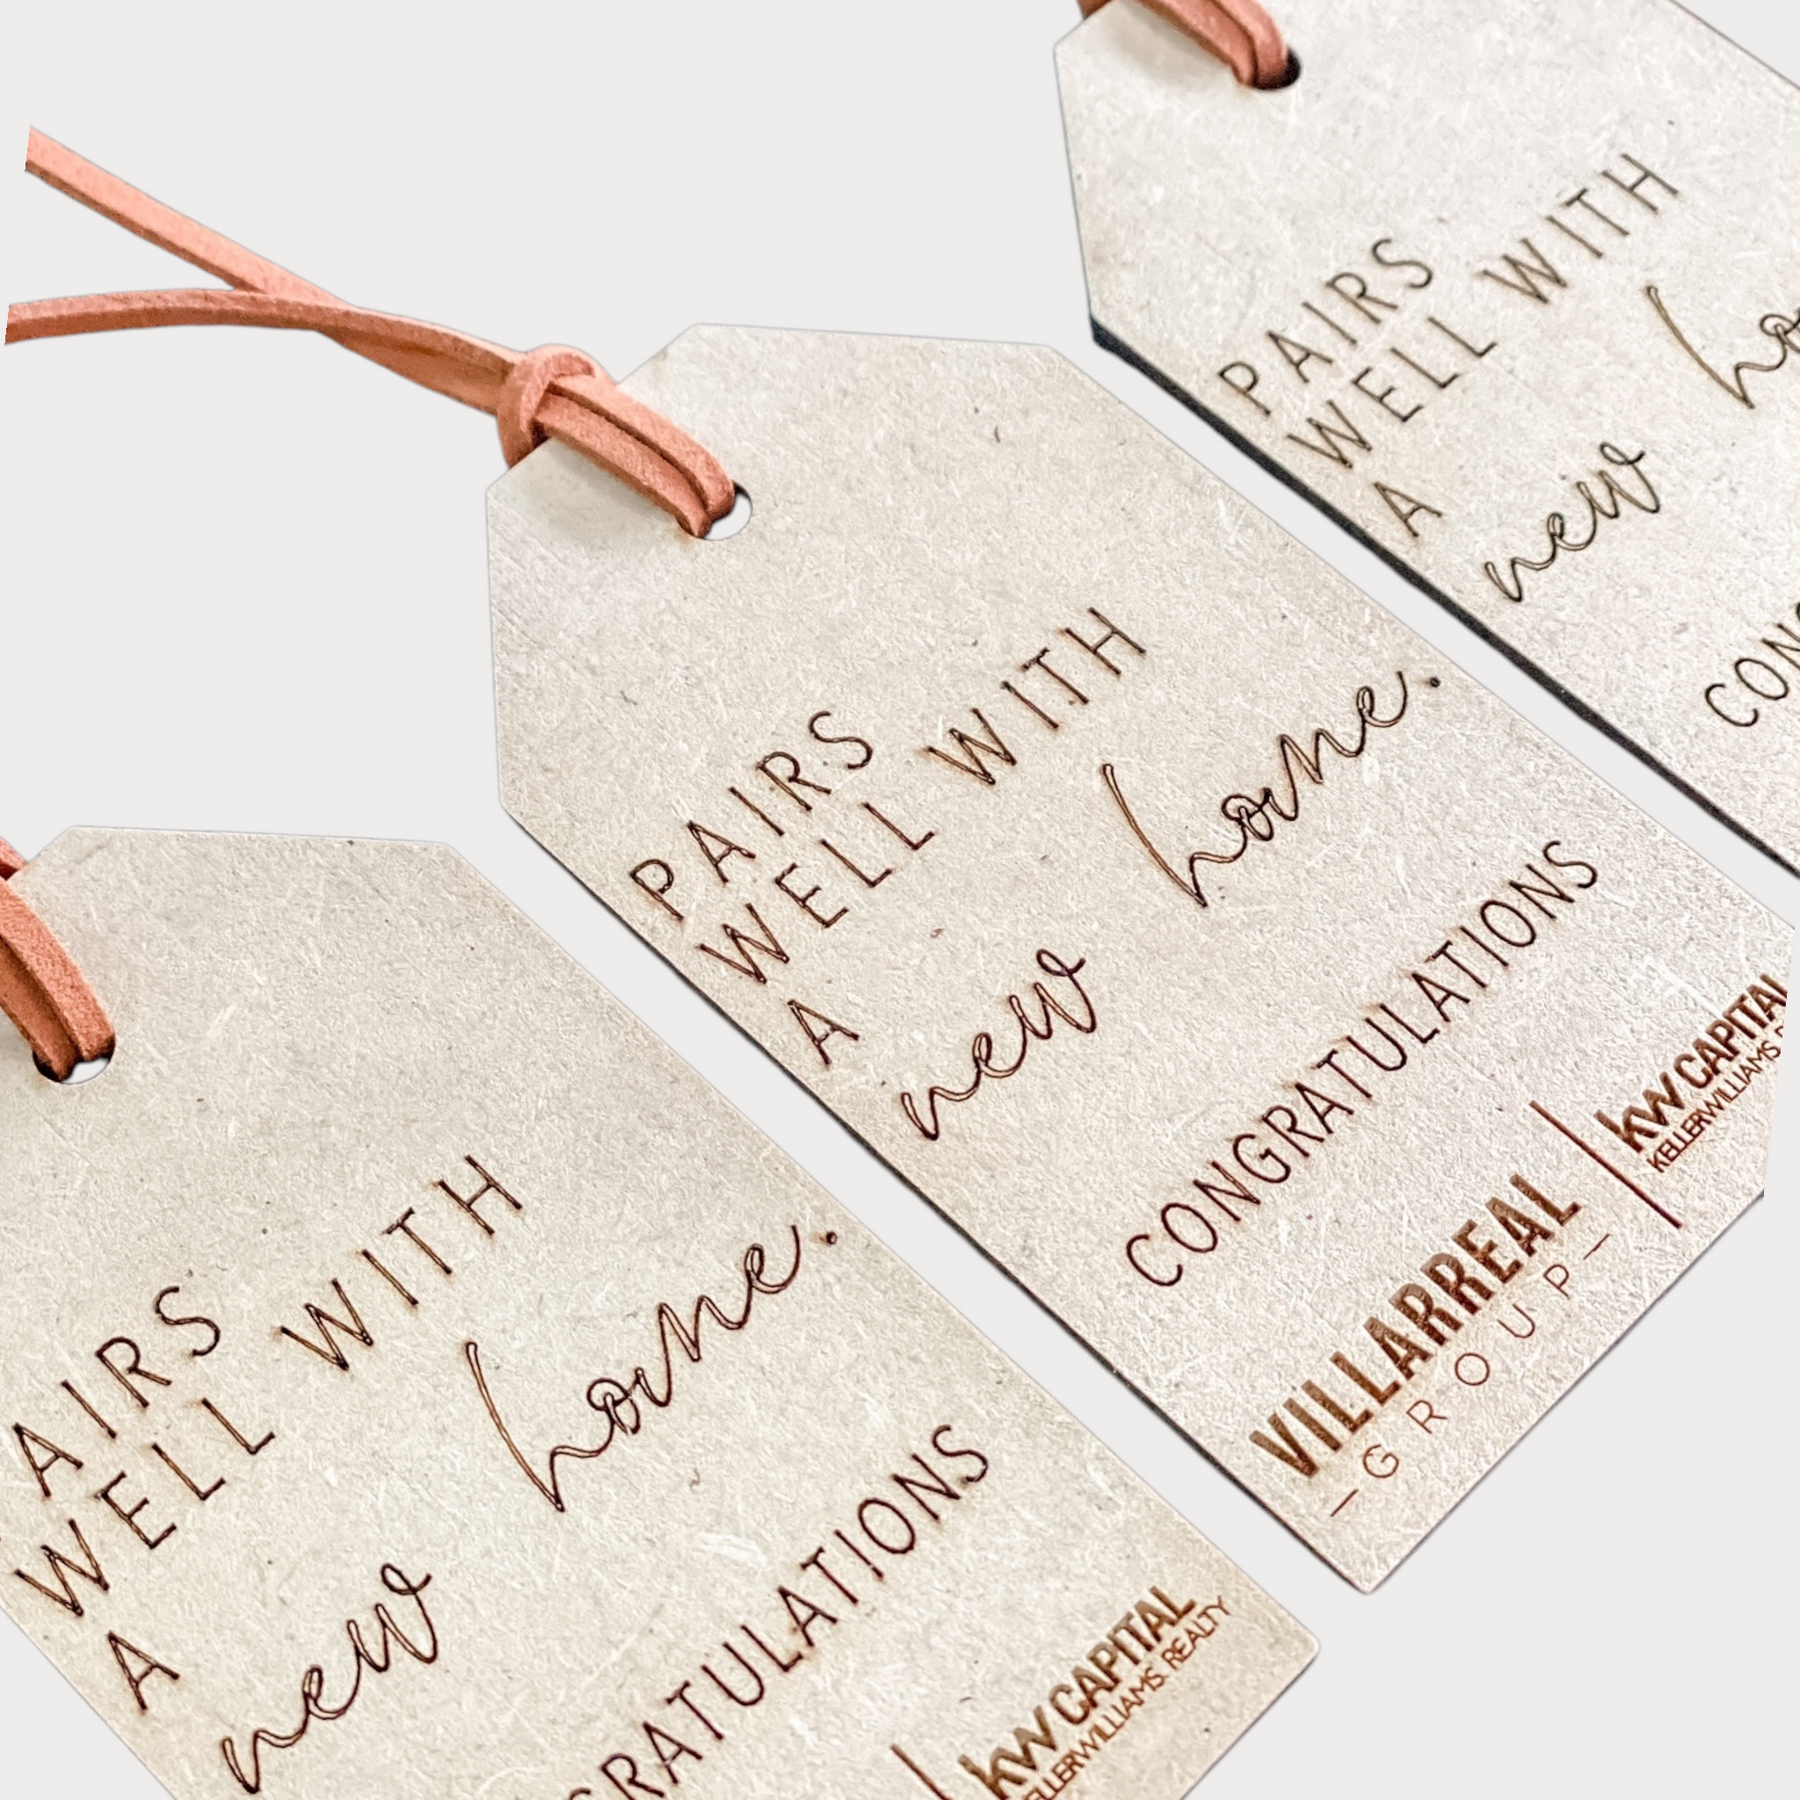 PAIRS
WELL WITH
A new home.
CONGRATULATIONS
VILLARREAL
—GROUP—
kw CAPITAL
KELLERWILLIAMS.
PAIRS
WELL WITH
A new
AIRS
WELL WITH
A new home.
GRATULATIONS
kw CAPITAL
KELLERWILLIAMS. REALTY